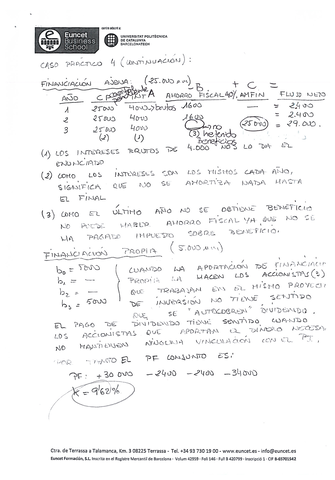 Euncet
Business
School
UNIVERSITAT POLITÈCNICA
DE CATALUNYA
BARCELONATECH
CASO PRÁCTICO 4 (CONTINUACIÓN):
FINANCIACIÓN AJENA: (25.000 mm)
A - B + C =
AÑO C INT AHORRO FISCAL 40% AMFIN FLUJO NETO
1 25000 4000 brutos 1600 — = 2400
2 25000 4000 1600 — = 2.400
3 25000 4000 no 25.000 = 29.000
(1) (2) (3) beneficios
(1) LOS INTERESES BRUTOS DE 4.000 NOS LO DA EL
ENUNCIADO
(2) COMO LOS INTERESES SON LOS MISMOS CADA AÑO,
SIGNIFICA QUE NO SE AMORTIZA NADA HASTA
EL FINAL
(3) COMO EL ÚLTIMO AÑO NO SE OBTIENE BENEFICIO
NO PUEDE HABER AHORRO FISCAL YA QUE NO SE
HA PAGADO IMPUESTO SOBRE BENEFICIO.
FINANCIACIÓN PROPIA (5.000 mm)
b0 = 5000 CUANDO LA APORTACIÓN DE FINANCIACIÓN
b1 = — PROPIA LA HACEN LOS ACCIONISTAS
b2 = — QUE TRABAJAN EN EL MISMO PROYECTO
b3 = 5000 DE INVERSIÓN NO TIENE SENTIDO
QUE SE "AUTOCOBREN" DIVIDENDO.
EL PAGO DE DIVIDENDO TIENE SENTIDO CUANDO
LOS ACCIONISTAS QUE APORTAN EL DINERO
NO MANTIENEN NINGUNA VINCULACIÓN CON EL P.I.
POR TANTO EL PF CONJUNTO ES:
PF: +30000 -2400 -2400 -34000
K = 9'62%
Ctra. de Terrassa a Talamanca, Km. 3 08225 Terrassa - Tel. +34 93 730 19 00 - www.euncet.es - info@euncet.es
Euncet Formación, S.L. Inscrita en el Registro Mercantil de Barcelona - Volum 42959 - Foli 146 - Full B 420799 - Inscripció 1 - CIF B-65701542